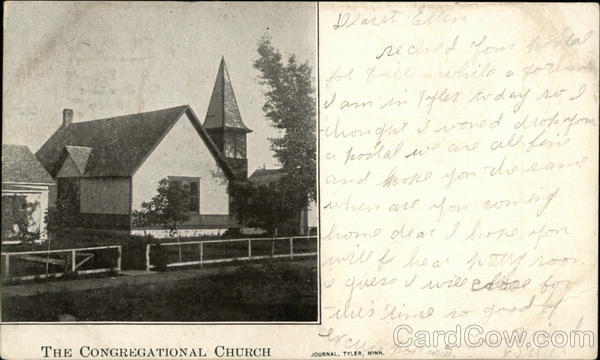 Dearst Ellen
recived your postal
for quite a while a go
I am in Tyler to day so I
thought I woued drop you
a postal we are all fine
and hope you the same
when are you coming
home dear I hope you
will be hear soon
I guess I will close for
this time so good
excuse
THE CONGREGATIONAL CHURCH
JOURNAL, TYLER, MINN.
CardCow.com